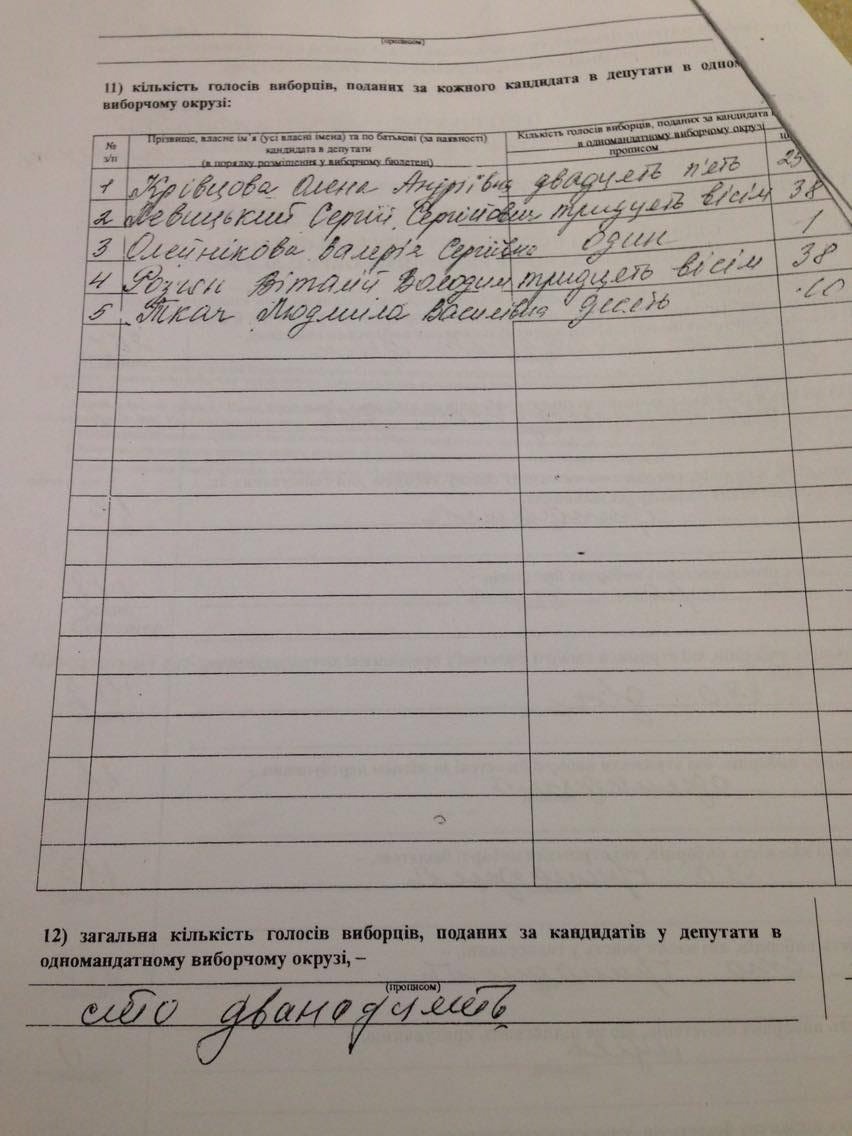 (прописом)
11) кількість голосів виборців, поданих за кожного кандидата в депутати в одном
виборчому окрузі:
№ з/п
Прізвище, власне ім'я (усі власні імена) та по батькові (за наявності)
кандидата в депутати
(в порядку розміщення у виборчому бюлетені)
Кількість голосів виборців, поданих за кандидата
в одномандатному виборчому окрузі
прописом
1 Крівцова Олена Андріївна двадцять п'ять 25
2 Левицький Сергій Сергійович тридцять вісім 38
3 Олейнікова Валерія Сергіївна один 1
4 Віталій Володим тридцять вісім 38
5 Ткач Людмила Василівна десять 10
12) загальна кількість голосів виборців, поданих за кандидатів у депутати в
одномандатному виборчому окрузі, –
(прописом)
сто дванадцять